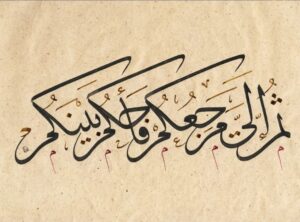 ثم إلي مرجعكم فأحكم بينكم